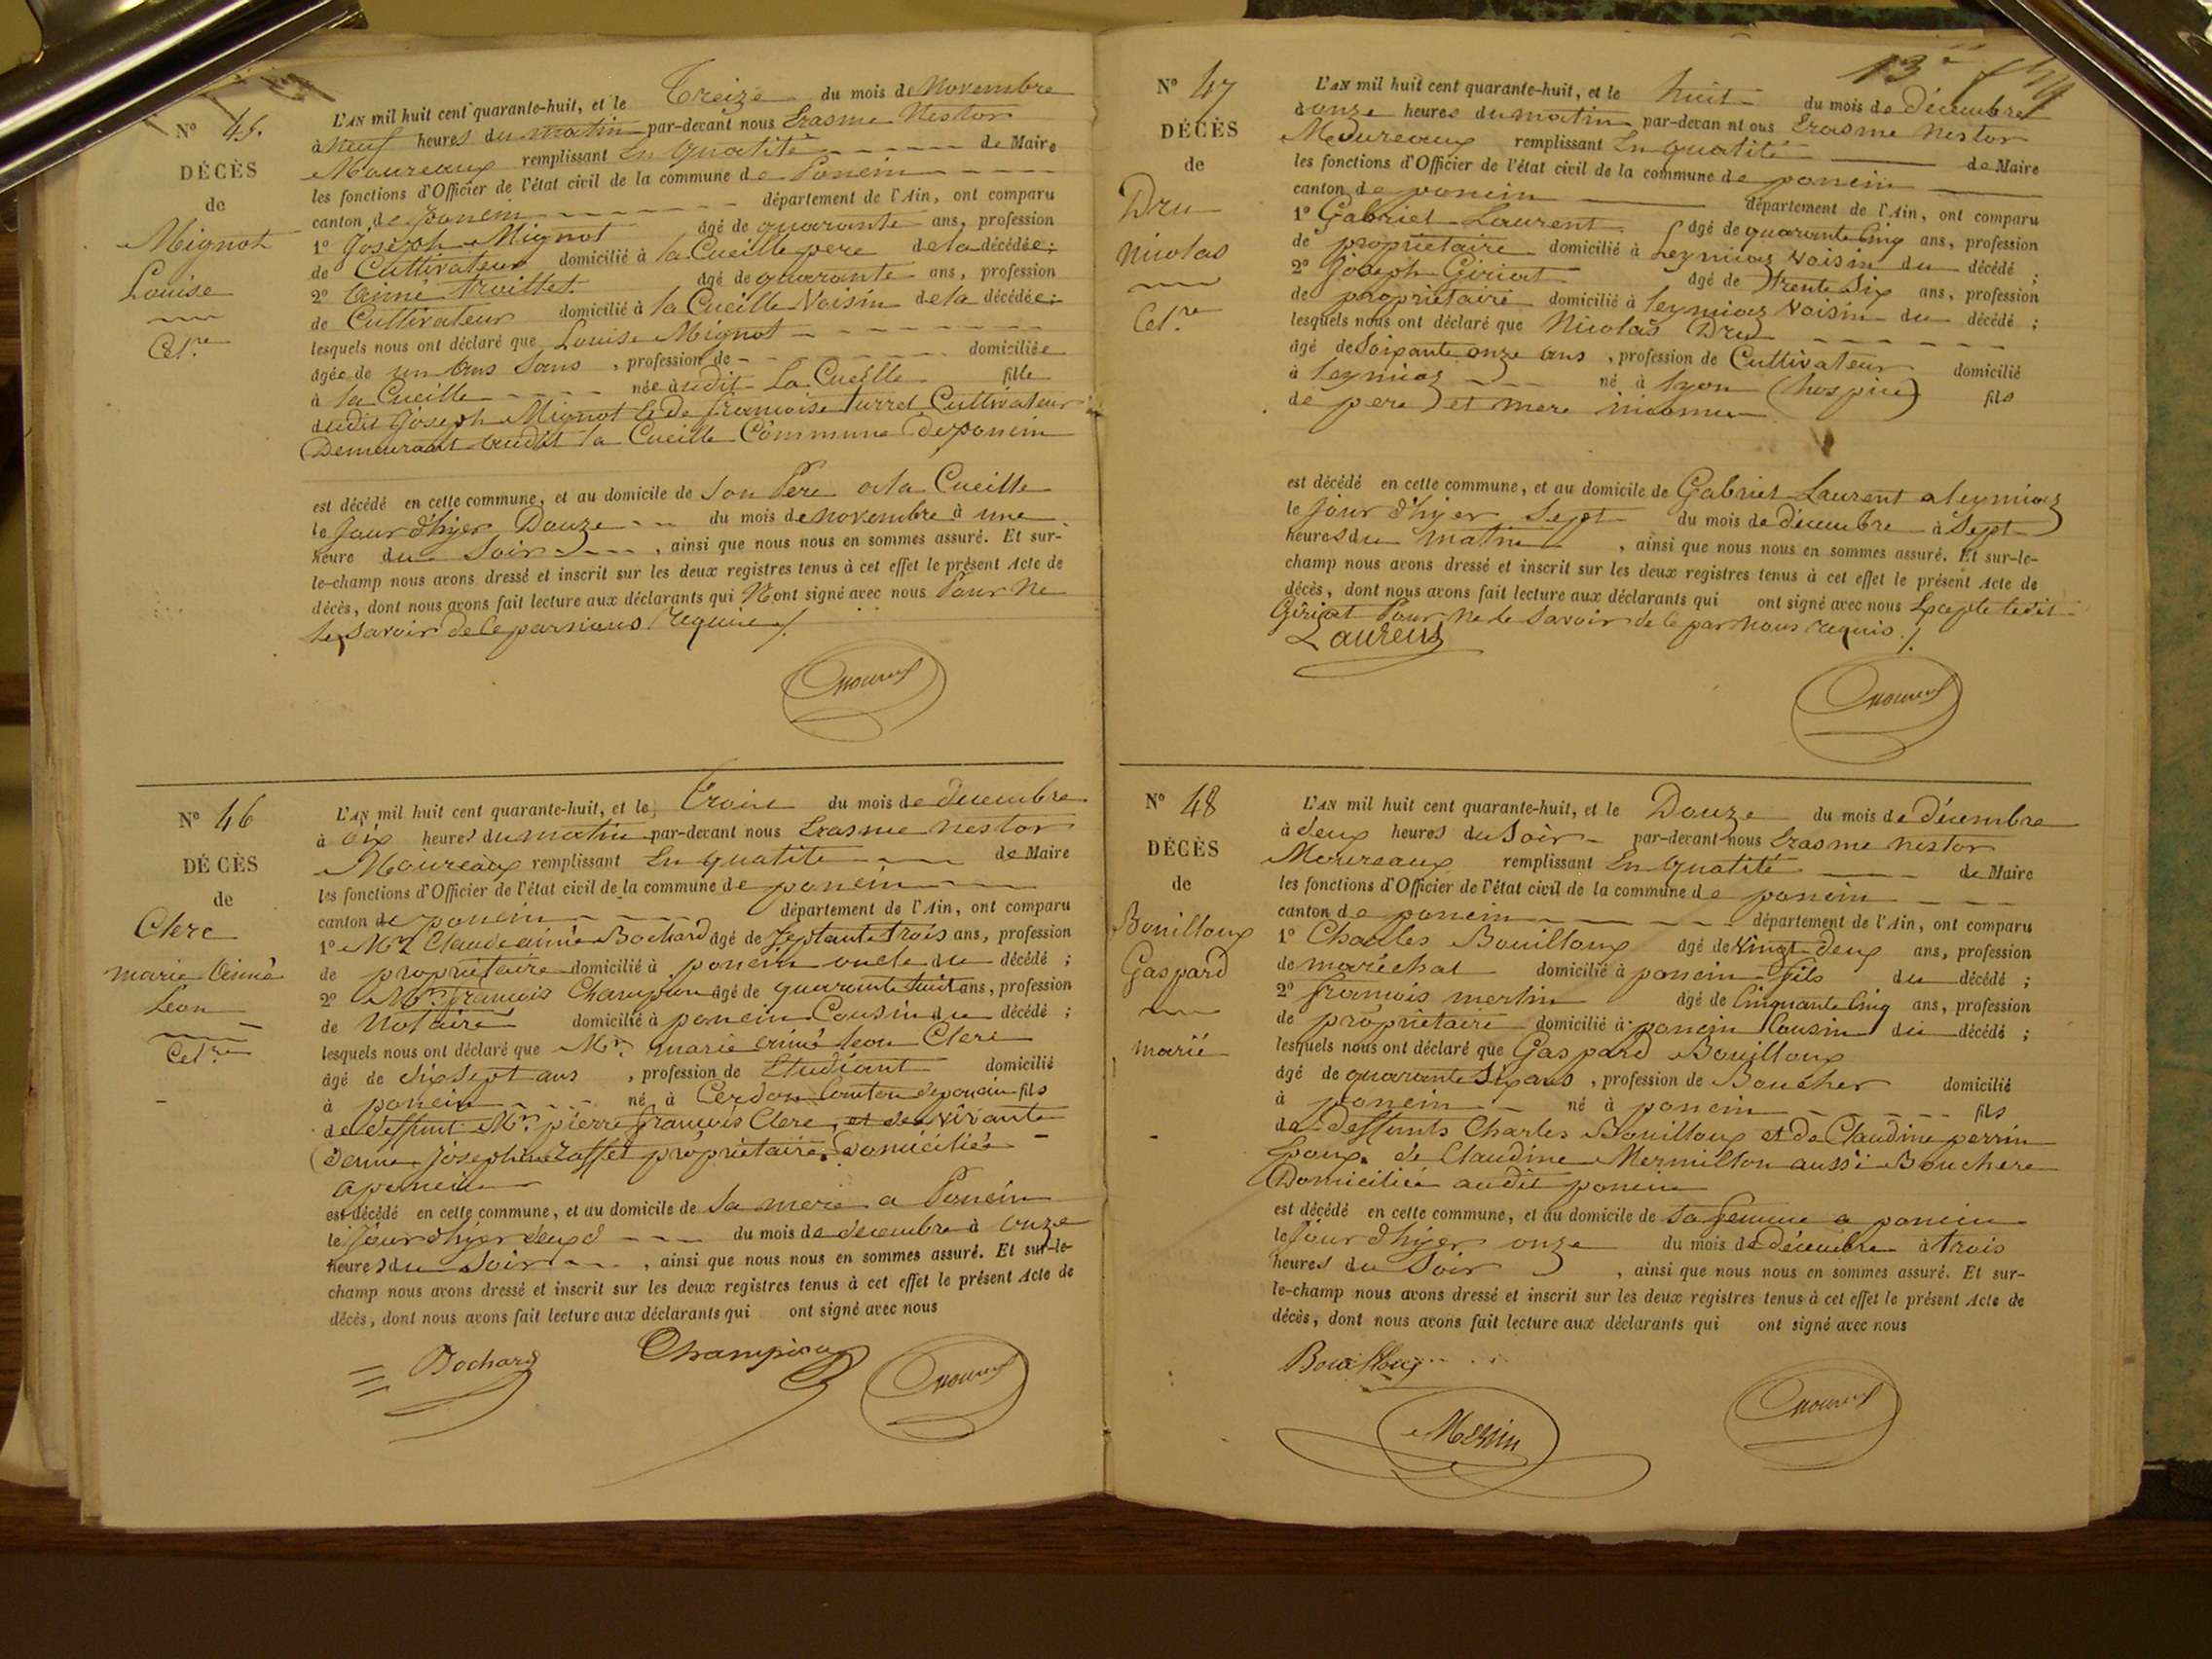 N° 45.
DÉCÈS
de
Mignot
Louise
Cel.re
L'AN mil huit cent quarante-huit, et le Treize du mois de Novembre
à neuf heures du matin par-devant nous Erasme Nestor
Moureaux remplissant En qualité de Maire
les fonctions d'Officier de l'état civil de la commune de Poncin
canton de poncin département de l'Ain, ont comparu
1° Joseph Mignot âgé de quarante ans, profession
de Cultivateur domicilié à la Cueille pere de la décédée ;
2° Aimé troillet âgé de quarante ans, profession
de Cultivateur domicilié à la Cueille Voisin de la décédée ;
lesquels nous ont déclaré que Louise Mignot
âgée de un ans Sans , profession de domiciliée
à la Cueille née audit La Cueille fille
dudit Joseph Mignot Et de françoise turrel Cultivateur
Demeurant audit la Cueille Commune de poncin
est décédé en cette commune, et au domicile de Son Pere a la Cueille
le Jour d'hyer Douze du mois de novembre à une
heure du Soir , ainsi que nous nous en sommes assuré. Et sur-
le-champ nous avons dressé et inscrit sur les deux registres tenus à cet effet le présent Acte de
décès, dont nous avons fait lecture aux déclarants qui N'ont signé avec nous Pour Ne
le savoir de ce par nous requis /.
N° 46
DÉCÈS
de
Clerc
marie Aimé
Leon
Cel.re
L'AN mil huit cent quarante-huit, et le Trois du mois de decembre
à Dix heures du matin par-devant nous Erasme nestor
Moureaux remplissant En qualité de Maire
les fonctions d'Officier de l'état civil de la commune de poncin
canton de poncin département de l'Ain, ont comparu
1° Mr Claude aimé Bochard âgé de Septante trois ans, profession
de propriétaire domicilié à poncin oncle du décédé ;
2° Mr. francois Champion âgé de quarante huit ans, profession
de Notaire domicilié à poncin Cousin du décédé ;
lesquels nous ont déclaré que Mr. marie aimé leon Clerc
âgé de dix Sept ans , profession de Etudiant domicilié
à poncin né à Cerdon Canton de poncin fils
de deffunt Mr. pierre françois Clerc, et de Vivante
Dame Josephine propriétaire. Domiciliée
a poncin
est décédé en cette commune, et au domicile de Sa mere a Poncin
le Jour d'hyer deux du mois de decembre à onze
heures du Soir , ainsi que nous nous en sommes assuré. Et sur-le-
champ nous avons dressé et inscrit sur les deux registres tenus à cet effet le présent Acte de
décès, dont nous avons fait lecture aux déclarants qui ont signé avec nous
Bochard Champion
13e
N° 47
DÉCÈS
de
Dru
Nicolas
Cel.re
L'AN mil huit cent quarante-huit, et le huit du mois de décembre
à onze heures du matin par-devan nt ous Erasme Nestor
Moureaux remplissant En qualité de Maire
les fonctions d'Officier de l'état civil de la commune de poncin
canton de poncin département de l'Ain, ont comparu
1° Gabriel Laurent âgé de quarante Cinq ans, profession
de propriétaire domicilié à Leymiaz Voisin du décédé ;
2° Joseph Giriat âgé de Trente Six ans, profession
de propriétaire domicilié à leymiaz Voisin du décédé ;
lesquels nous ont déclaré que Nicolas Dru
âgé de Soixante onze ans , profession de Cultivateur domicilié
à leymiaz né à lyon (hospice) fils
de pere et mere inconnu
est décédé en cette commune, et au domicile de Gabriel Laurent a leymiaz
le Jour d'hyer Sept du mois de décembre à Sept
heures du matin , ainsi que nous nous en sommes assuré. Et sur-le-
champ nous avons dressé et inscrit sur les deux registres tenus à cet effet le présent Acte de
décès, dont nous avons fait lecture aux déclarants qui ont signé avec nous Excepte ledit
Giriat Pour ne le Savoir de ce par nous requis /.
Laurent
N° 48
DÉCÈS
de
Bouilloux
Gaspard
marié
L'AN mil huit cent quarante-huit, et le Douze du mois de décembre
à deux heures du Soir par-devant nous Erasme nestor
Moureaux remplissant En qualité de Maire
les fonctions d'Officier de l'état civil de la commune de poncin
canton de poncin département de l'Ain, ont comparu
1° Charles Bouilloux âgé de Vingt deux ans, profession
de maréchal domicilié à poncin fils du décédé ;
2° françois merlin âgé de Cinquante Cinq ans, profession
de propriétaire domicilié à poncin Cousin du décédé ;
lesquels nous ont déclaré que Gaspard Bouilloux
âgé de quarante Six ans , profession de Boucher domicilié
à poncin né à poncin fils
de Deffunts Charles Bouilloux et de Claudine perrin
Epoux de Claudine Mermillon aussi Bouchere
Domiciliée audit poncin
est décédé en cette commune, et au domicile de Sa femme a poncin
le Jour d'hyer onze du mois de décembre à trois
heures du Soir , ainsi que nous nous en sommes assuré. Et sur-
le-champ nous avons dressé et inscrit sur les deux registres tenus à cet effet le présent Acte de
décès, dont nous avons fait lecture aux déclarants qui ont signé avec nous
Bouilloux
Merlin